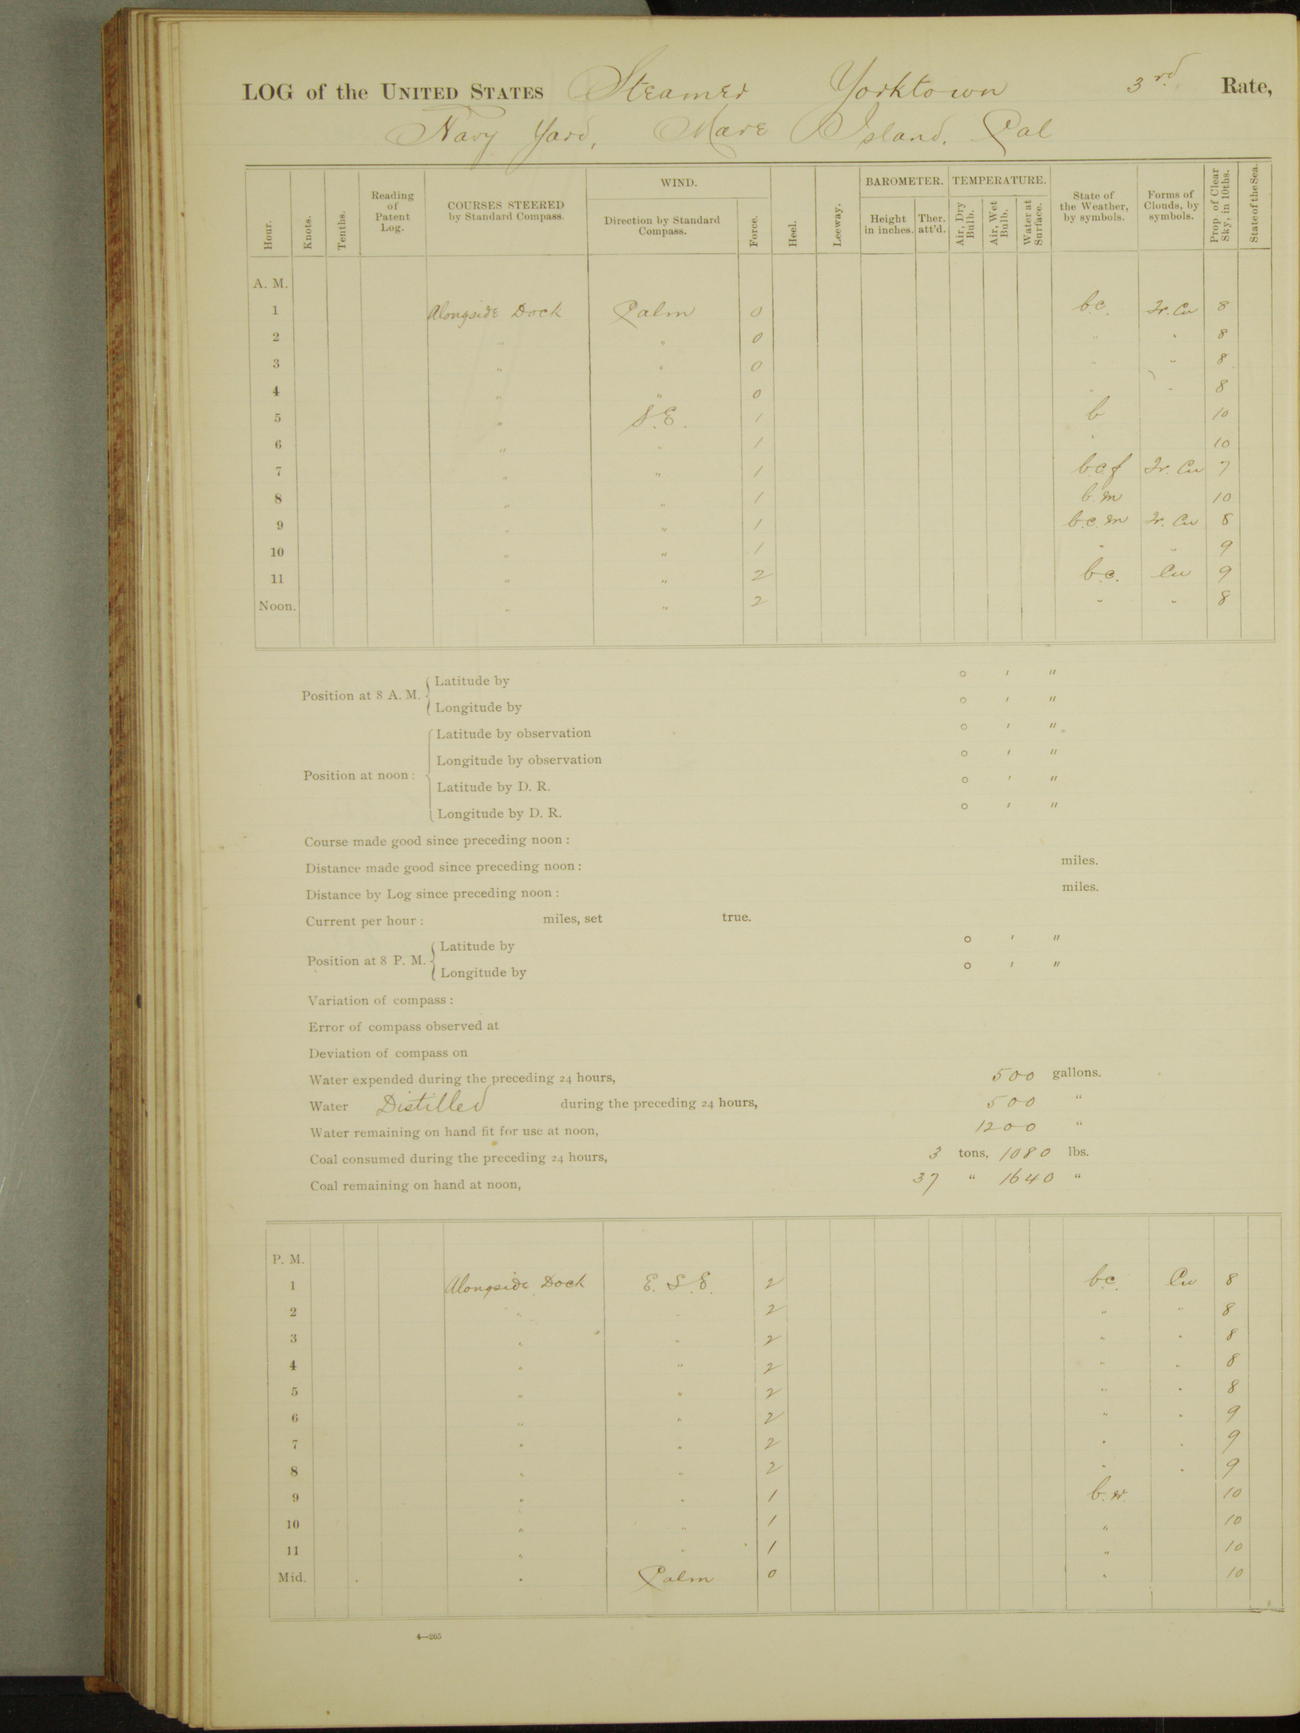 LOG of the UNITED STATES Steamer Yorktown 3rd. Rate,
Navy Yard, Mare Island, Cal
Hour. Knots. Tenths. Reading of Patent Log. COURSES STEERED by Standard Compass. WIND. Direction by Standard Compass. Force. Heel. Leeway. BAROMETER. Height in inches. Ther. att'd. TEMPERATURE. Air, Dry Bulb. Air, Wet Bulb. Water at Surface. State of the Weather, by symbols. Forms of Clouds, by symbols. Prop. of Clear Sky, in 10ths. State of the Sea.
A. M.
1 Alongside Dock Calm 0 b.c. Fr. Cu 8
2 " " 0 " " 8
3 " " 0 " " 8
4 " " 0 " " 8
5 " S.E. 1 b 10
6 " " 1 " 10
7 " " 1 b.c.f Fr. Cu 7
8 " " 1 b.m 10
9 " " 1 b.c.m Fr. Cu 8
10 " " 1 " " 9
11 " " 2 b.c. Cu 9
Noon. " " 2 " " 8
Position at 8 A. M. Latitude by ° ' "
Longitude by ° ' "
Position at noon: Latitude by observation ° ' "
Longitude by observation ° ' "
Latitude by D. R. ° ' "
Longitude by D. R. ° ' "
Course made good since preceding noon:
Distance made good since preceding noon: miles.
Distance by Log since preceding noon: miles.
Current per hour: miles, set true.
Position at 8 P. M. Latitude by ° ' "
Longitude by ° ' "
Variation of compass:
Error of compass observed at
Deviation of compass on
Water expended during the preceding 24 hours, 500 gallons.
Water Distilled during the preceding 24 hours, 500 "
Water remaining on hand fit for use at noon, 1200 "
Coal consumed during the preceding 24 hours, 3 tons, 1080 lbs.
Coal remaining on hand at noon, 37 " 1640 "
P. M.
1 Alongside Dock E. S.E. 2 b.c. Cu 8
2 " " 2 " " 8
3 " " 2 " " 8
4 " " 2 " " 8
5 " " 2 " " 8
6 " " 2 " " 9
7 " " 2 " " 9
8 " " 2 " " 9
9 " " 1 10
10 " " 1 " 10
11 " " 1 " 10
Mid. " Calm 0 " 10
4—265